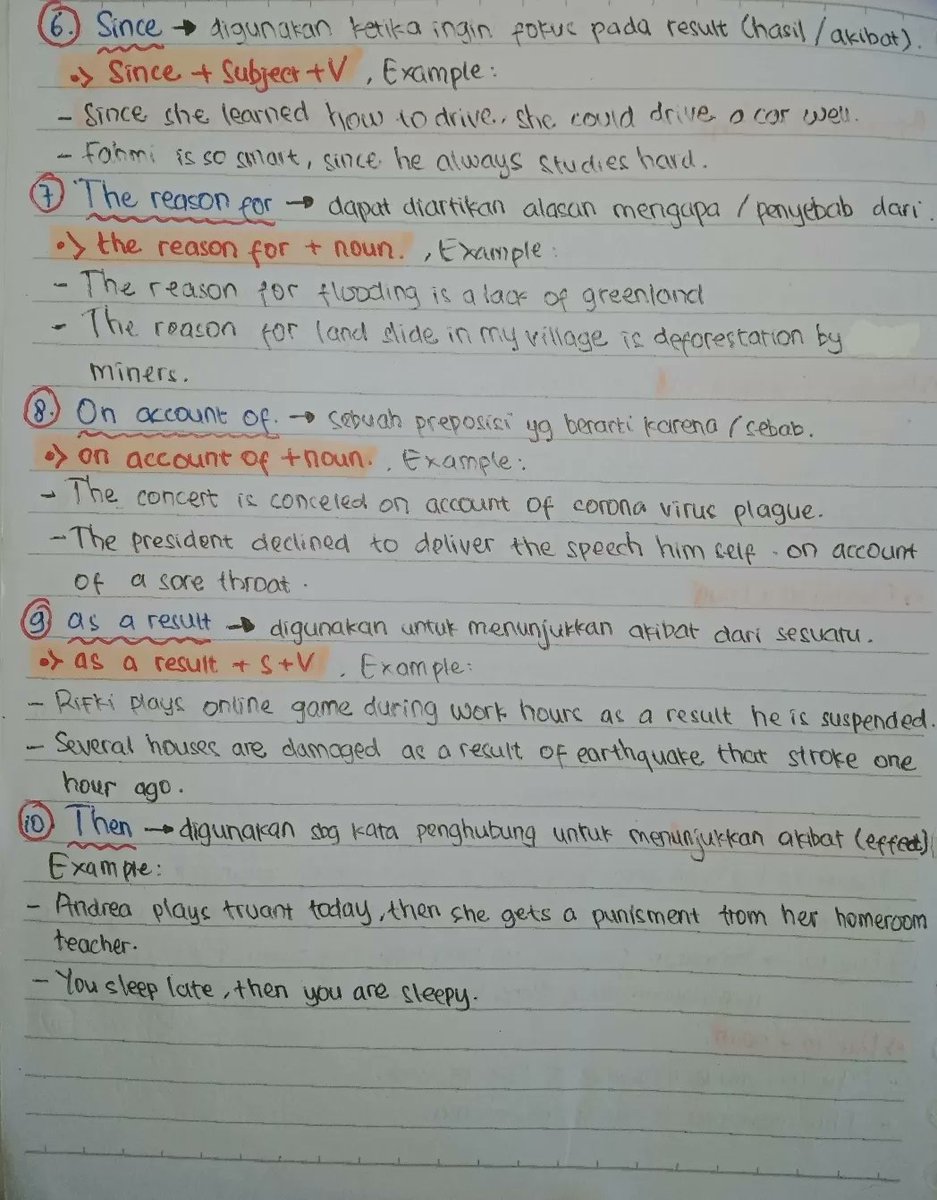 6. Since → digunakan ketika ingin fokus pada result (hasil / akibat).
•> Since + Subject + V , Example :
- Since she learned how to drive, she could drive a car well.
- Fahmi is so smart, since he always studies hard.
7 The reason for → dapat diartikan alasan mengapa / penyebab dari.
•> the reason for + noun. , Example :
- The reason for flooding is a lack of greenland
- The reason for land slide in my village is deforestation by
miners.
8. On account of. → sebuah preposisi yg berarti karena / sebab.
•> on account of + noun. , Example :
- The concert is conceled on account of corona virus plague.
- The president declined to deliver the speech him self . on account
of a sore throat .
9 as a result → digunakan untuk menunjukkan akibat dari sesuatu.
•> as a result + S + V , Example :
- Rifki plays online game during work hours as a result he is suspended.
- Several houses are damaged as a result of earthquake that stroke one
hour ago.
10 Then → digunakan sbg kata penghubung untuk menunjukkan akibat (effect)
Example :
- Andrea plays truant today, then she gets a punisment from her homeroom
teacher.
- You sleep late, then you are sleepy.